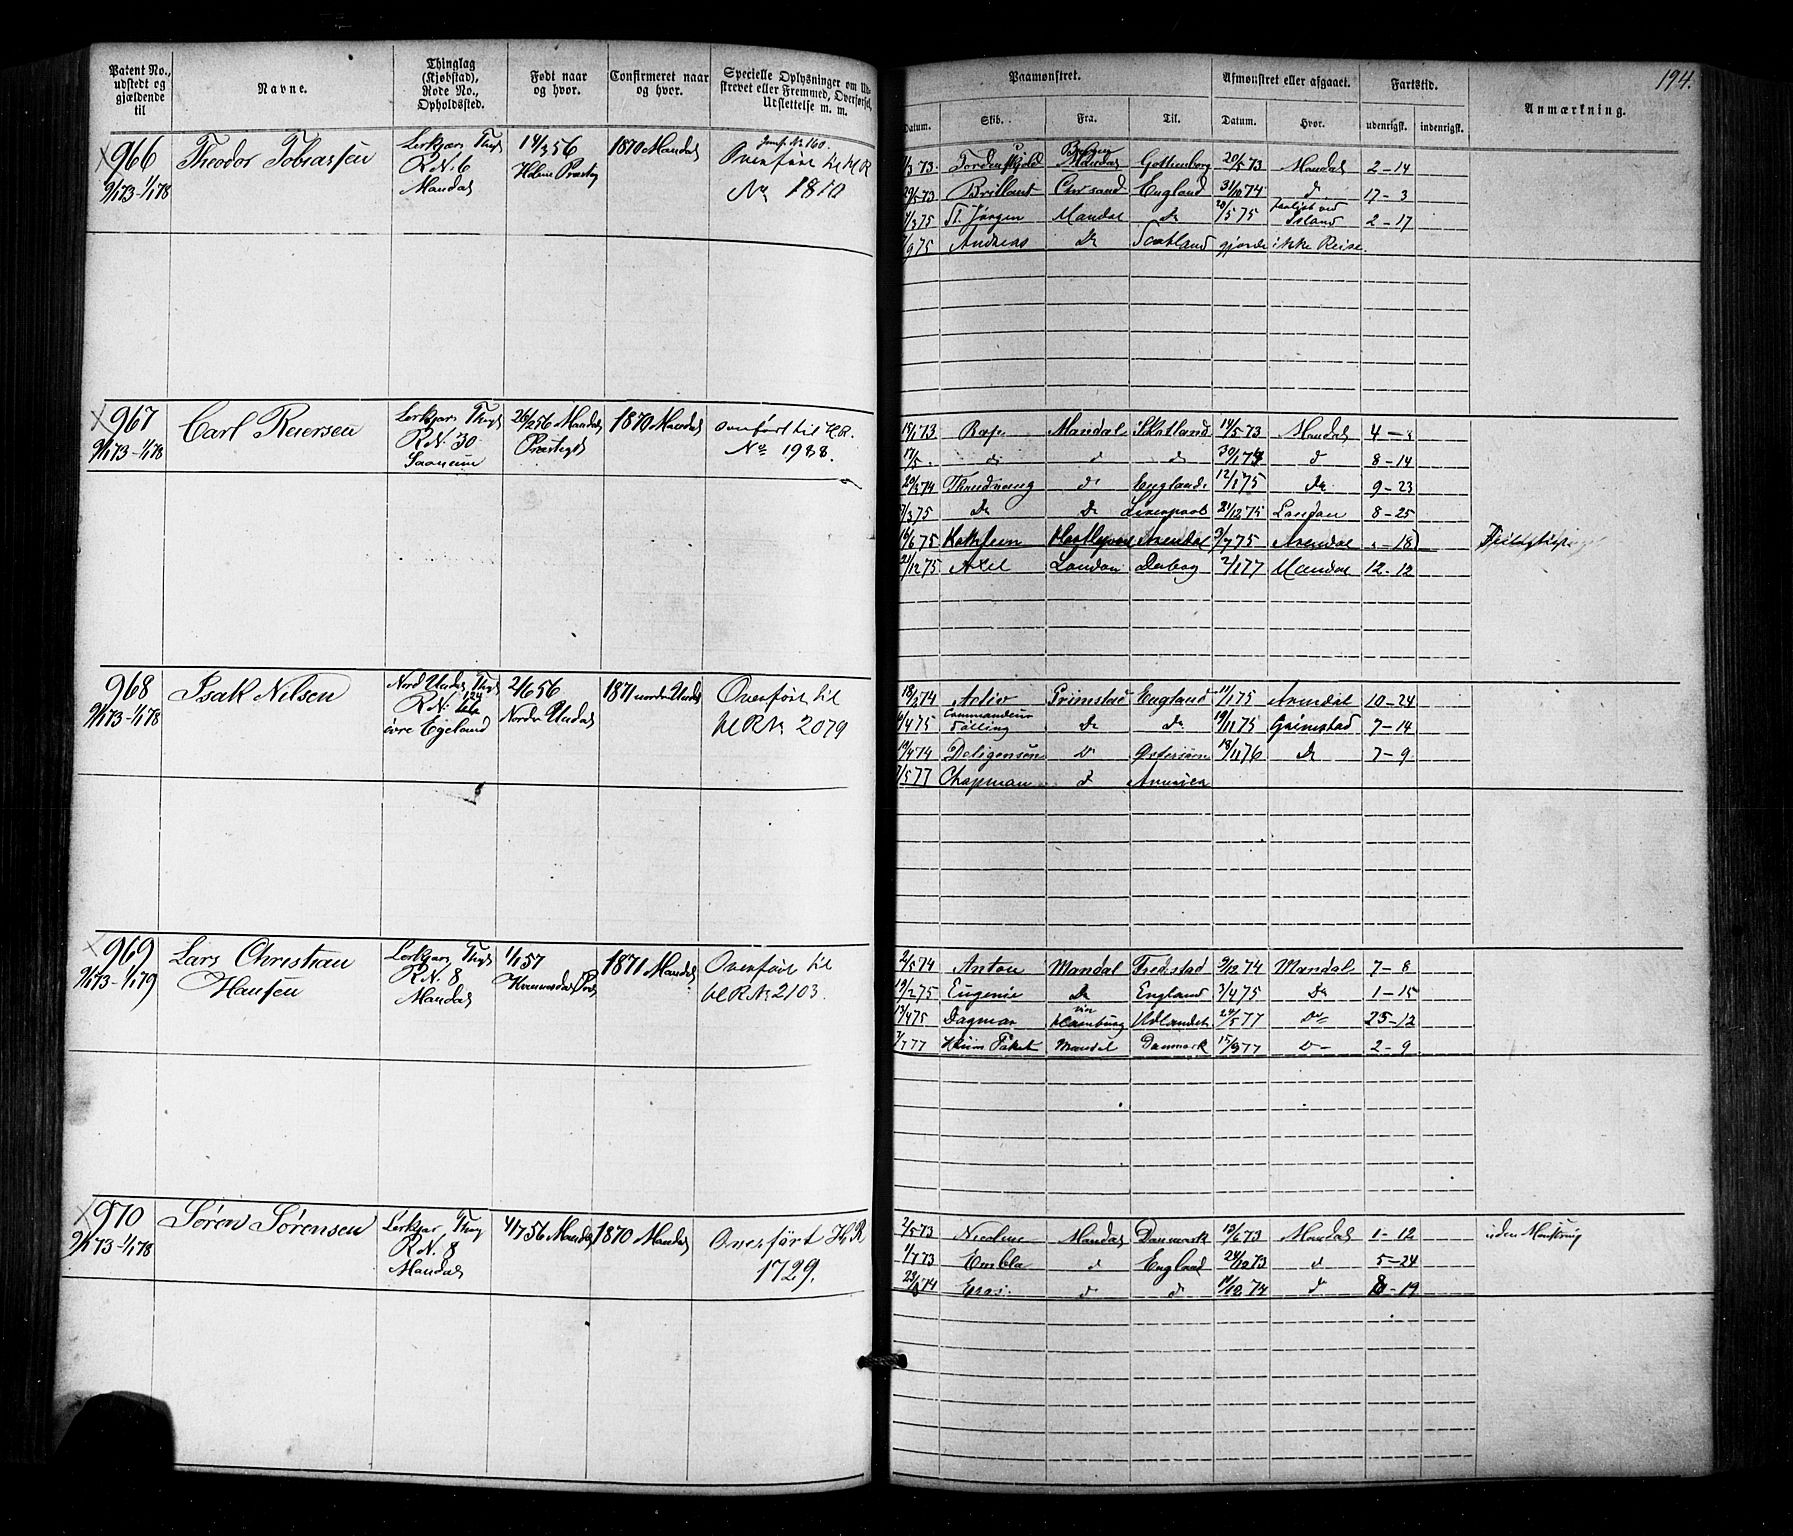 194.
Patent No., udstedt og gjældende til
Navne.
Thinglag (Kjøbstad), Rode No., Opholdssted.
Født naar og hvor.
Confirmeret naar og hvor.
Specielle Oplysninger om Udskrevet eller Fremmed, Overførsel, Udslettelse m. m.
Paamønstret.
Afmønstret eller afgaaet.
Fartstid.
Anmærkning.
Datum. Skib. Fra. Til. Datum. Hvor. udenrigst. indenrigst.
966 Theodor Tobiassen
9/1 73 - 1/1 78
R.N. 6
Mandal
14/3 56
1870 Mandal
Jevnf. No 160.
Overført til H R
No 1810
73. Tordenskjold Mandal Gottenborg 20/5 73 Mandal 2 - 14
73 Brillant Chrsand England 31/10 74 d 17 - 3
75 St. Jørgen Mandal Do 20/5 75 Island 2 - 17
75 Andreas Do Scotland gjorde ikke Reise
967 Carl Reiersen
9/1 73 - 1/1 78
R.N. 30
26/2 56 Mandal
Præstegd
1870 Mandal
overført til H.R.
No 1988.
15/1 73 Mandal Skotland 14/5 73 Mandal 4 -
17/5 d d d 30/1 74 d 8 - 14
20/3 74 Thrudvang d England 12/1 75 Do 9 - 23
75 Do Do Liverpool 21/12 75 London 8 - 25
16/6 75 Arendal 3/7 75 Arendal - 18
21/12 75 Axel London 2/1 77 Mandal 12 - 12
968 Isak Nilsen
9/1 73 - 1/1 78
Nord Undal
R.N. 124
øvre Egeland
2/6 56
Nordre Undal
1871 nordre Undal
Overført til
H R No 2079
18/2 74 Activ Grimstad England 11/1 75 Arendal 10 - 24
4 75 Commandeur Falling Do Do 19/11 75 Grimstad 7 - 14
19/4 74 Deligensen Do Østersøen 18/11 76 Do 7 - 9
5 77 Chapman d America
969 Lars Christian
Hansen
9/1 73 - 1/1 79
R.N. 8
Mandal
1/1 57
1871 Mandal
Overført til
H R No 2103.
2/5 74 Anton Mandal Fredstad 9/12 74 Mandal 7 - 8
19/2 75 Eugenie Do England 3/4 75 Do 1 - 15
13/4 75 Dagmar Hamburg Udlandet 24/5 77 Do 25 - 12
7 77 Mandal Danmark 15/9 77 Do 2 - 9
970 Søren Sørensen
9/1 73 - 1/1 78
R.N. 8
Mandal
4/7 56 Mandal
1870 Mandal
Overført H.R
1729.
2/5 73 Nicoline Mandal Danmark 12/6 73 Mandal 1 - 12 uden Mønstring
1/7 73 Embla d England 24/12 73 d 5 - 24
74 d d 14/12 74 d 8 - 19